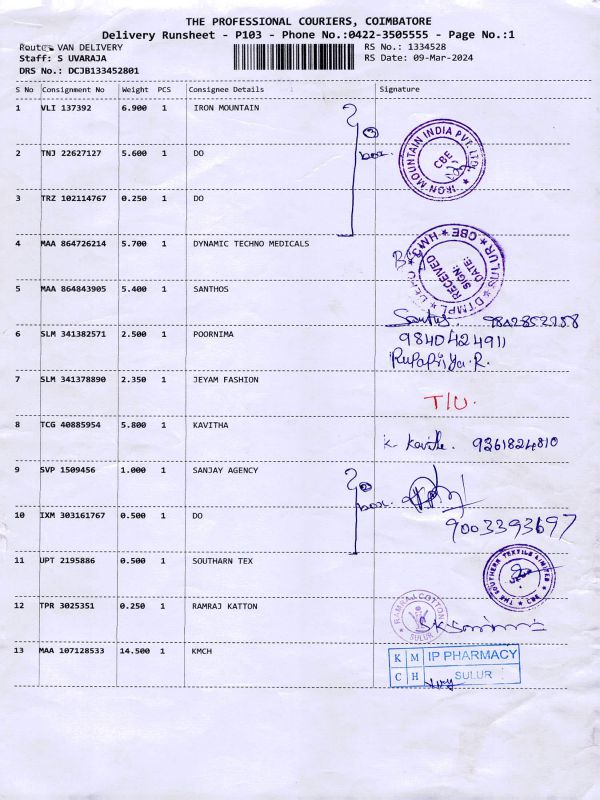 THE PROFESSIONAL COURIERS, COIMBATORE
Delivery Runsheet - P103 - Phone No.:0422-3505555 - Page No.:1
Route: VAN DELIVERY RS No.: 1334528
Staff: S UVARAJA RS Date: 09-Mar-2024
DRS No.: DCJB133452801
S No Consignment No Weight PCS Consignee Details Signature
1 VLI 137392 6.900 1 IRON MOUNTAIN
IRON MOUNTAIN INDIA PVT. LTD. CBE
2 TNJ 22627127 5.600 1 DO
box.
3 TRZ 102114767 0.250 1 DO
4 MAA 864726214 5.700 1 DYNAMIC TECHNO MEDICALS
RECEIVED
SIGN:
DATE:
5 MAA 864843905 5.400 1 SANTHOS
6 SLM 341382571 2.500 1 POORNIMA 9840424911
7 SLM 341378890 2.350 1 JEYAM FASHION
T/U.
8 TCG 40885954 5.800 1 KAVITHA
K Kavithe. 9361824810
9 SVP 1509456 1.000 1 SANJAY AGENCY
box.
10 IXM 303161767 0.500 1 DO
9003393697
11 UPT 2195886 0.500 1 SOUTHARN TEX
THE SOUTHERN TEXTILE LIMITED CBE
12 TPR 3025351 0.250 1 RAMRAJ KATTON
RAMRAJ COTTON SULUR
13 MAA 107128533 14.500 1 KMCH
K M IP PHARMACY
C H SULUR